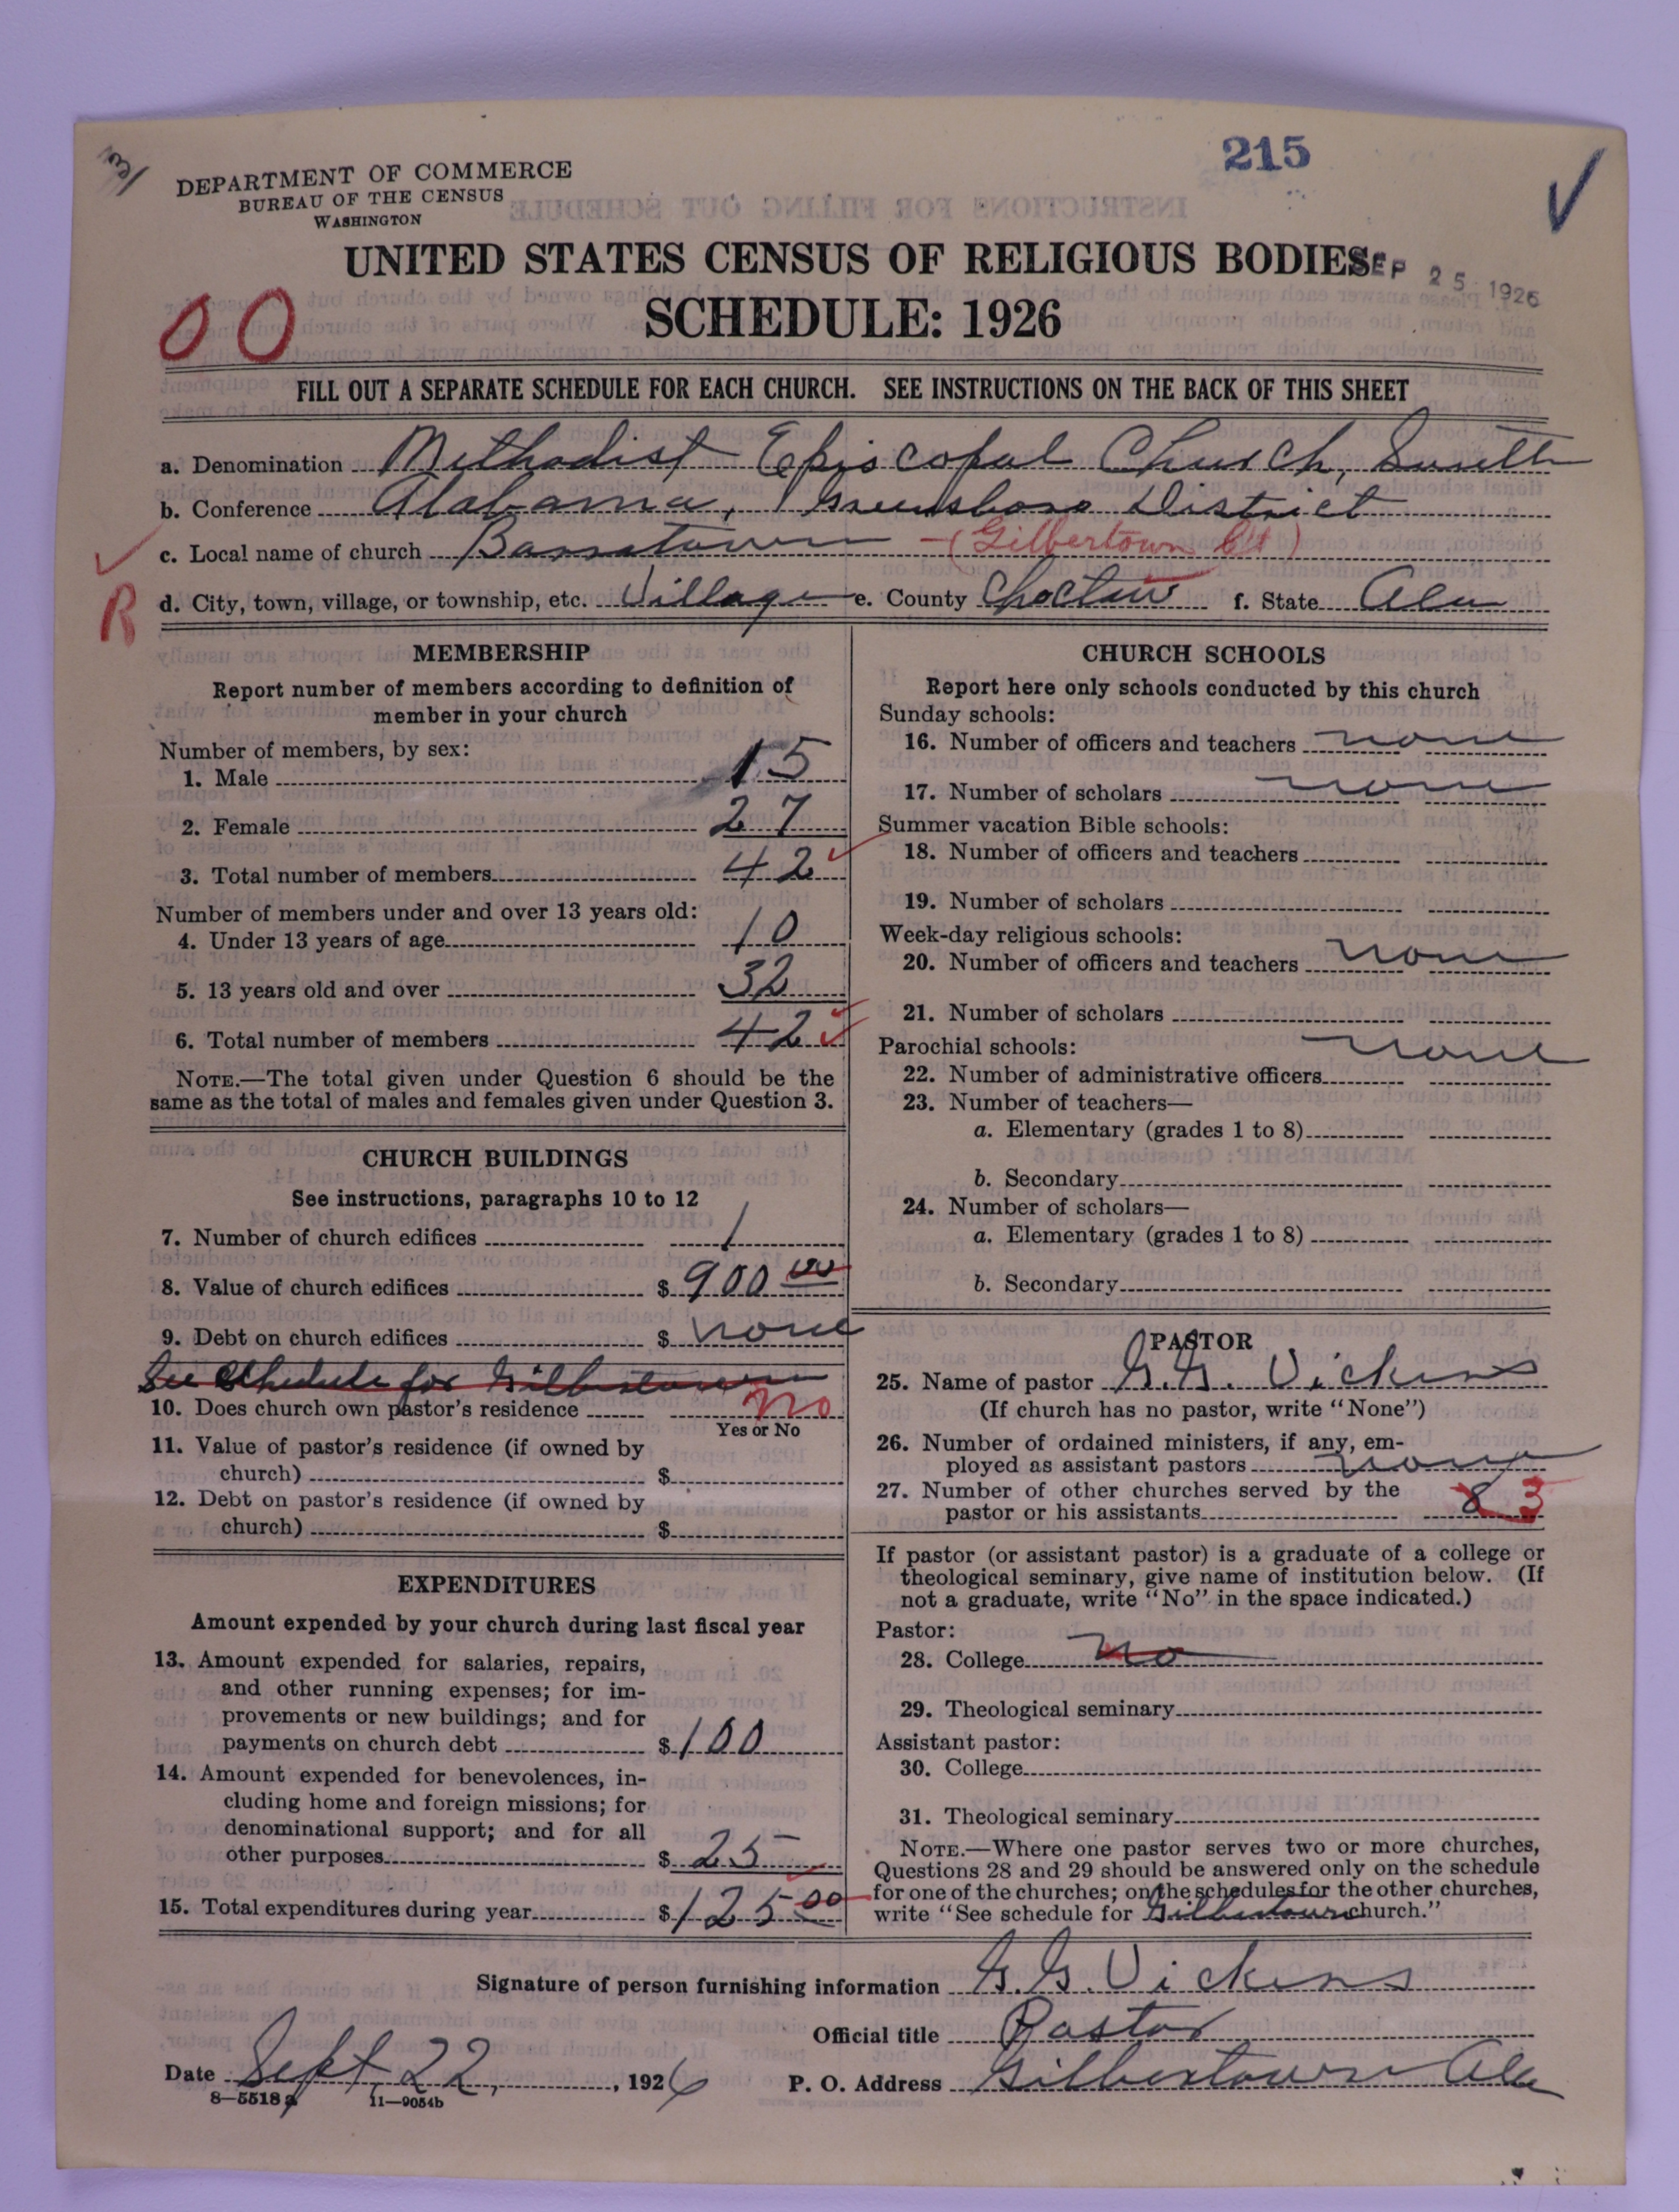 3/
215
DEPARTMENT OF COMMERCE
BUREAU OF THE CENSUS
WASHINGTON
UNITED STATES CENSUS OF RELIGIOUS BODIES
SEP 25 1926
SCHEDULE: 1926
00
FILL OUT A SEPARATE SCHEDULE FOR EACH CHURCH. SEE INSTRUCTIONS ON THE BACK OF THIS SHEET
a. Denomination Methodist Episcopal Church, South
b. Conference Alabama, Greensboro District
c. Local name of church Bassetown - (Gilbertown Ct)
R
d. City, town, village, or township, etc. Village e. County Choctaw f. State Ala
MEMBERSHIP
Report number of members according to definition of
member in your church
Number of members, by sex:
1. Male 15
2. Female 27
3. Total number of members 42
Number of members under and over 13 years old:
4. Under 13 years of age 10
5. 13 years old and over 32
6. Total number of members 42
NOTE.—The total given under Question 6 should be the
same as the total of males and females given under Question 3.
CHURCH BUILDINGS
See instructions, paragraphs 10 to 12
7. Number of church edifices 1
8. Value of church edifices $ 900 00
9. Debt on church edifices $ none
See Schedule for Gilbertown
10. Does church own pastor's residence no
Yes or No
11. Value of pastor's residence (if owned by
church) $
12. Debt on pastor's residence (if owned by
church) $
EXPENDITURES
Amount expended by your church during last fiscal year
13. Amount expended for salaries, repairs,
and other running expenses; for im-
provements or new buildings; and for
payments on church debt $ 100
14. Amount expended for benevolences, in-
cluding home and foreign missions; for
denominational support; and for all
other purposes $ 25
15. Total expenditures during year $ 125 00
CHURCH SCHOOLS
Report here only schools conducted by this church
Sunday schools:
16. Number of officers and teachers none
17. Number of scholars none
Summer vacation Bible schools:
18. Number of officers and teachers
19. Number of scholars
Week-day religious schools:
20. Number of officers and teachers none
21. Number of scholars
Parochial schools: none
22. Number of administrative officers
23. Number of teachers—
a. Elementary (grades 1 to 8)
b. Secondary
24. Number of scholars—
a. Elementary (grades 1 to 8)
b. Secondary
PASTOR
25. Name of pastor G.G. Vickens
(If church has no pastor, write "None")
26. Number of ordained ministers, if any, em-
ployed as assistant pastors none
27. Number of other churches served by the
pastor or his assistants 8 3
If pastor (or assistant pastor) is a graduate of a college or
theological seminary, give name of institution below. (If
not a graduate, write "No" in the space indicated.)
Pastor:
28. College no
29. Theological seminary
Assistant pastor:
30. College
31. Theological seminary
NOTE.—Where one pastor serves two or more churches,
Questions 28 and 29 should be answered only on the schedule
for one of the churches; on the schedules for the other churches,
write "See schedule for Gilbertown church."
Signature of person furnishing information G.G. Vickens
Official title Pastor
Date Sept 22, 1926 P. O. Address Gilbertown Ala
8—5518 a 11—9054b